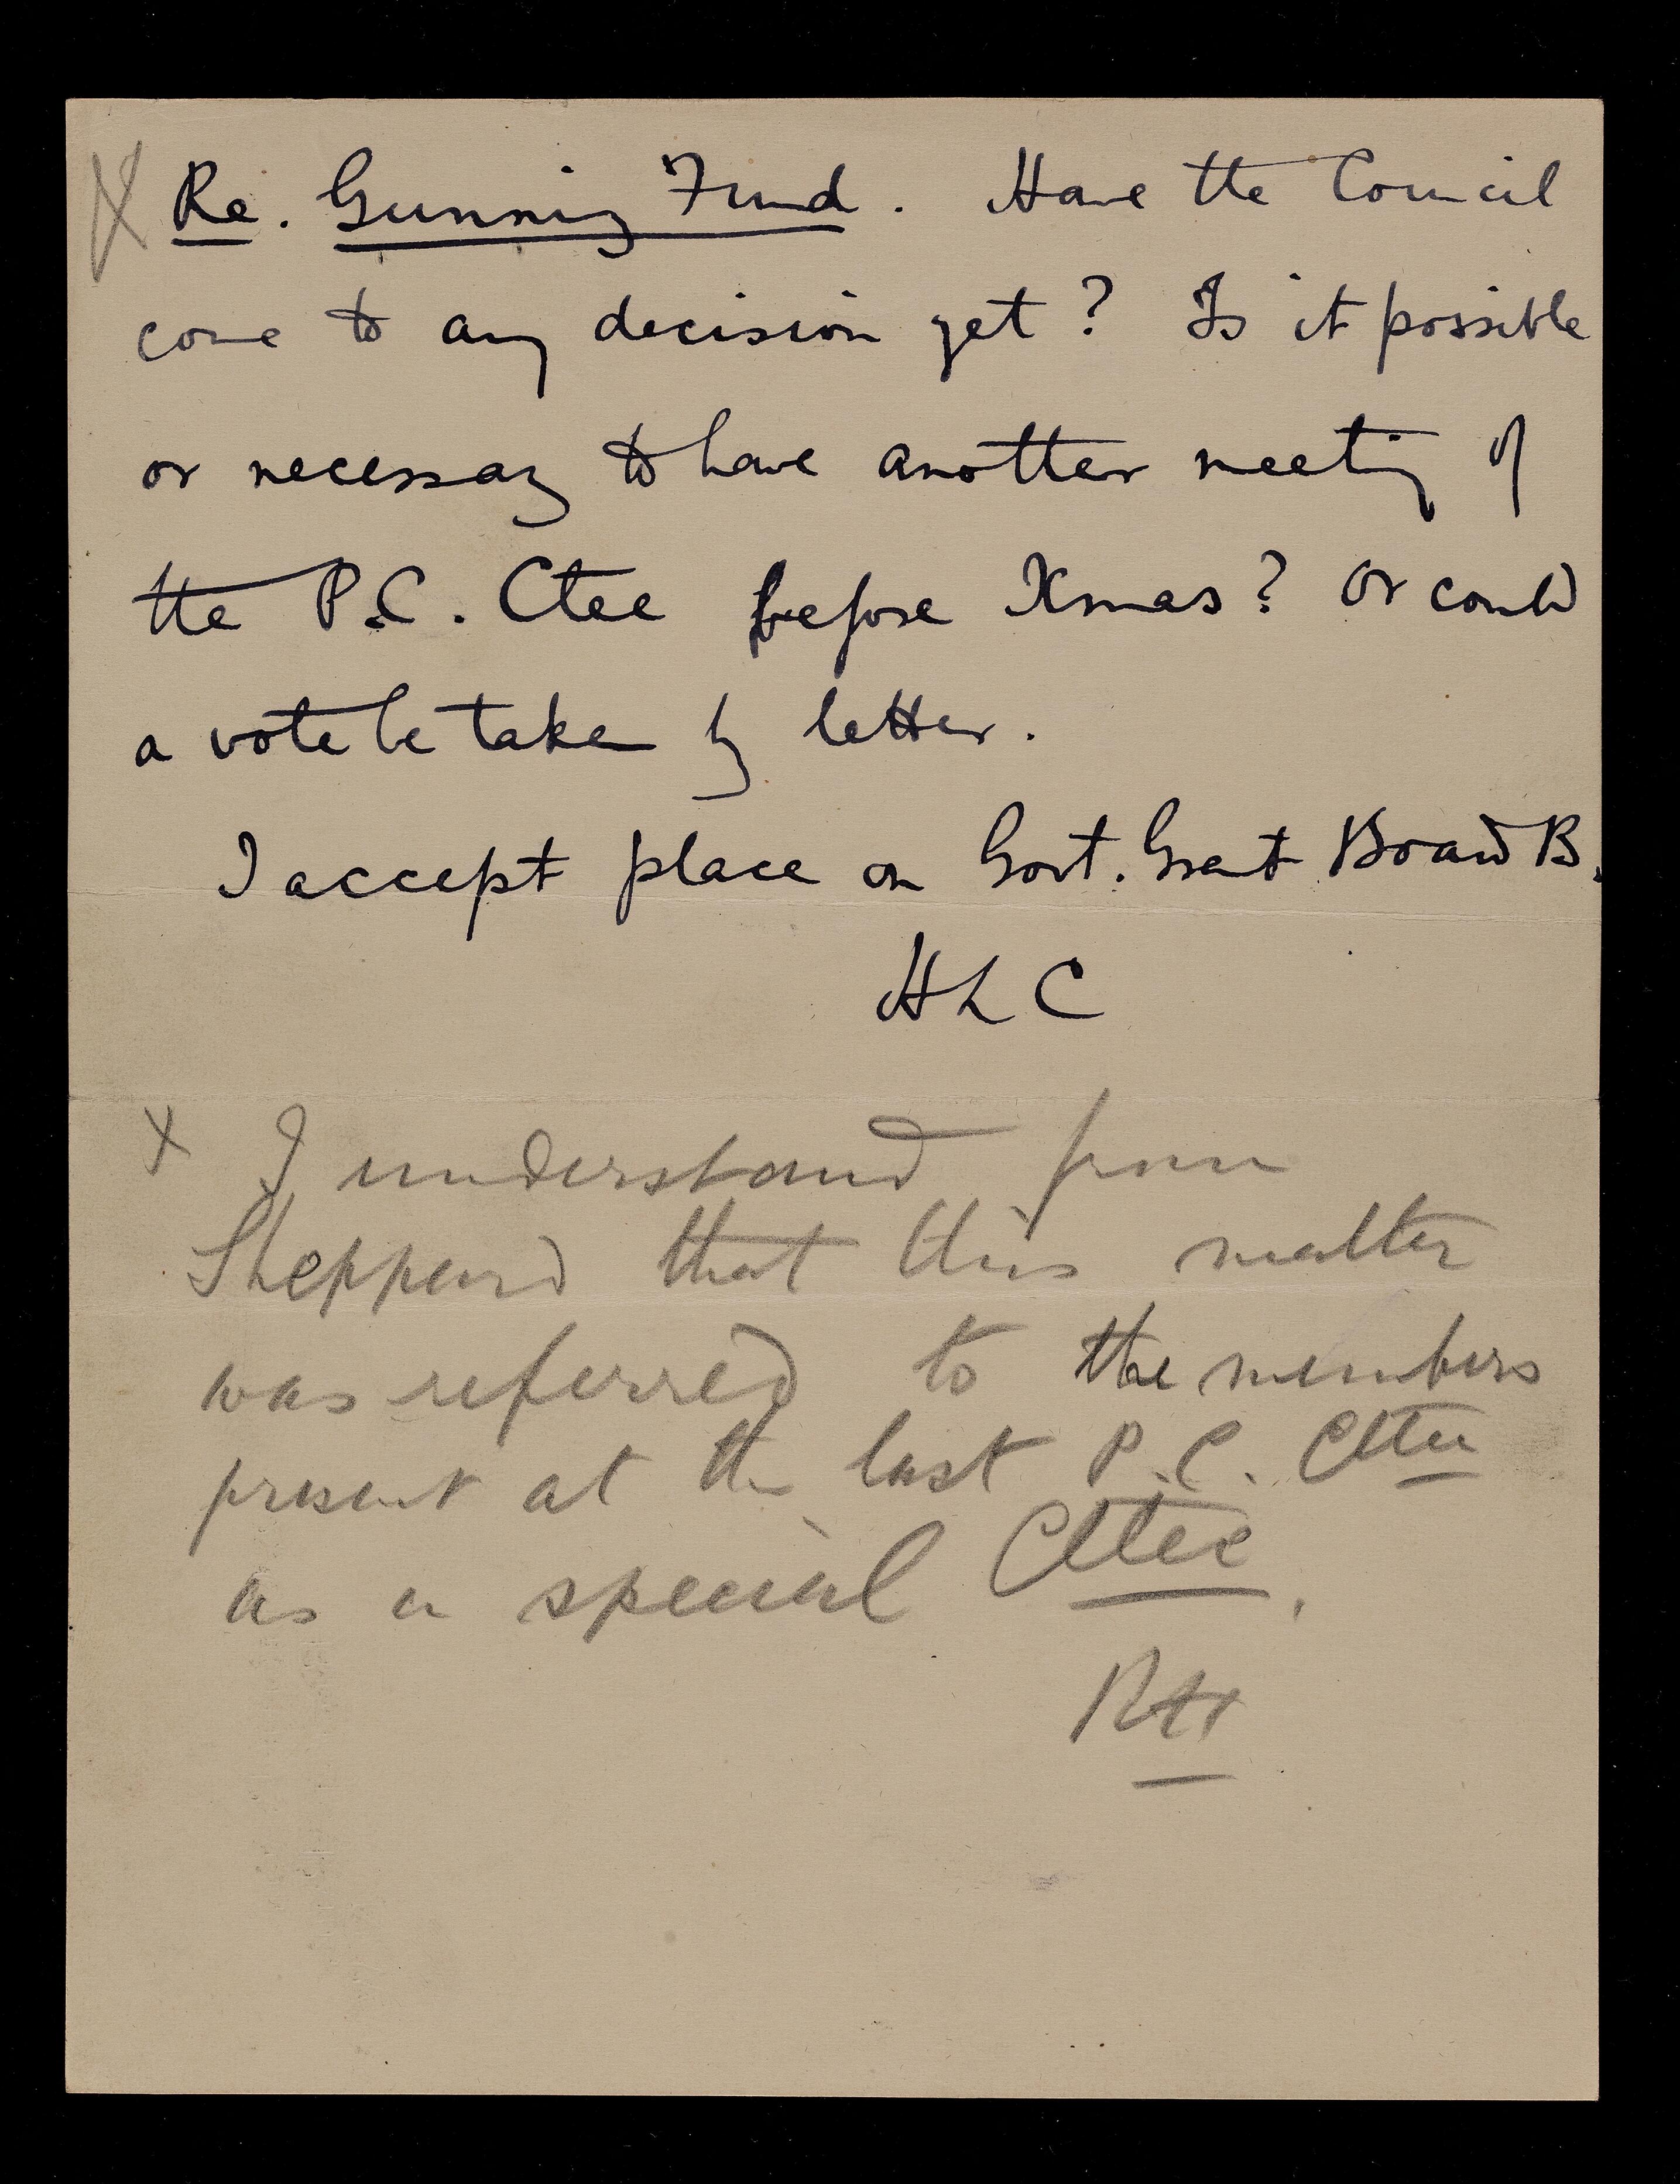 X Re. Gunning Fund. Have the Council
come to any decision yet? Is it possible
or necessary to have another meeting of
the P.C. Ctee before Xmas? Or could
a vote be taken by letter.
I accept place on Govt. Grant Board B.
HLC
X I understand from
Sheppard that this matter
was referred to the members
present at the last P.C. Cttee
as a special Cttee.
RH